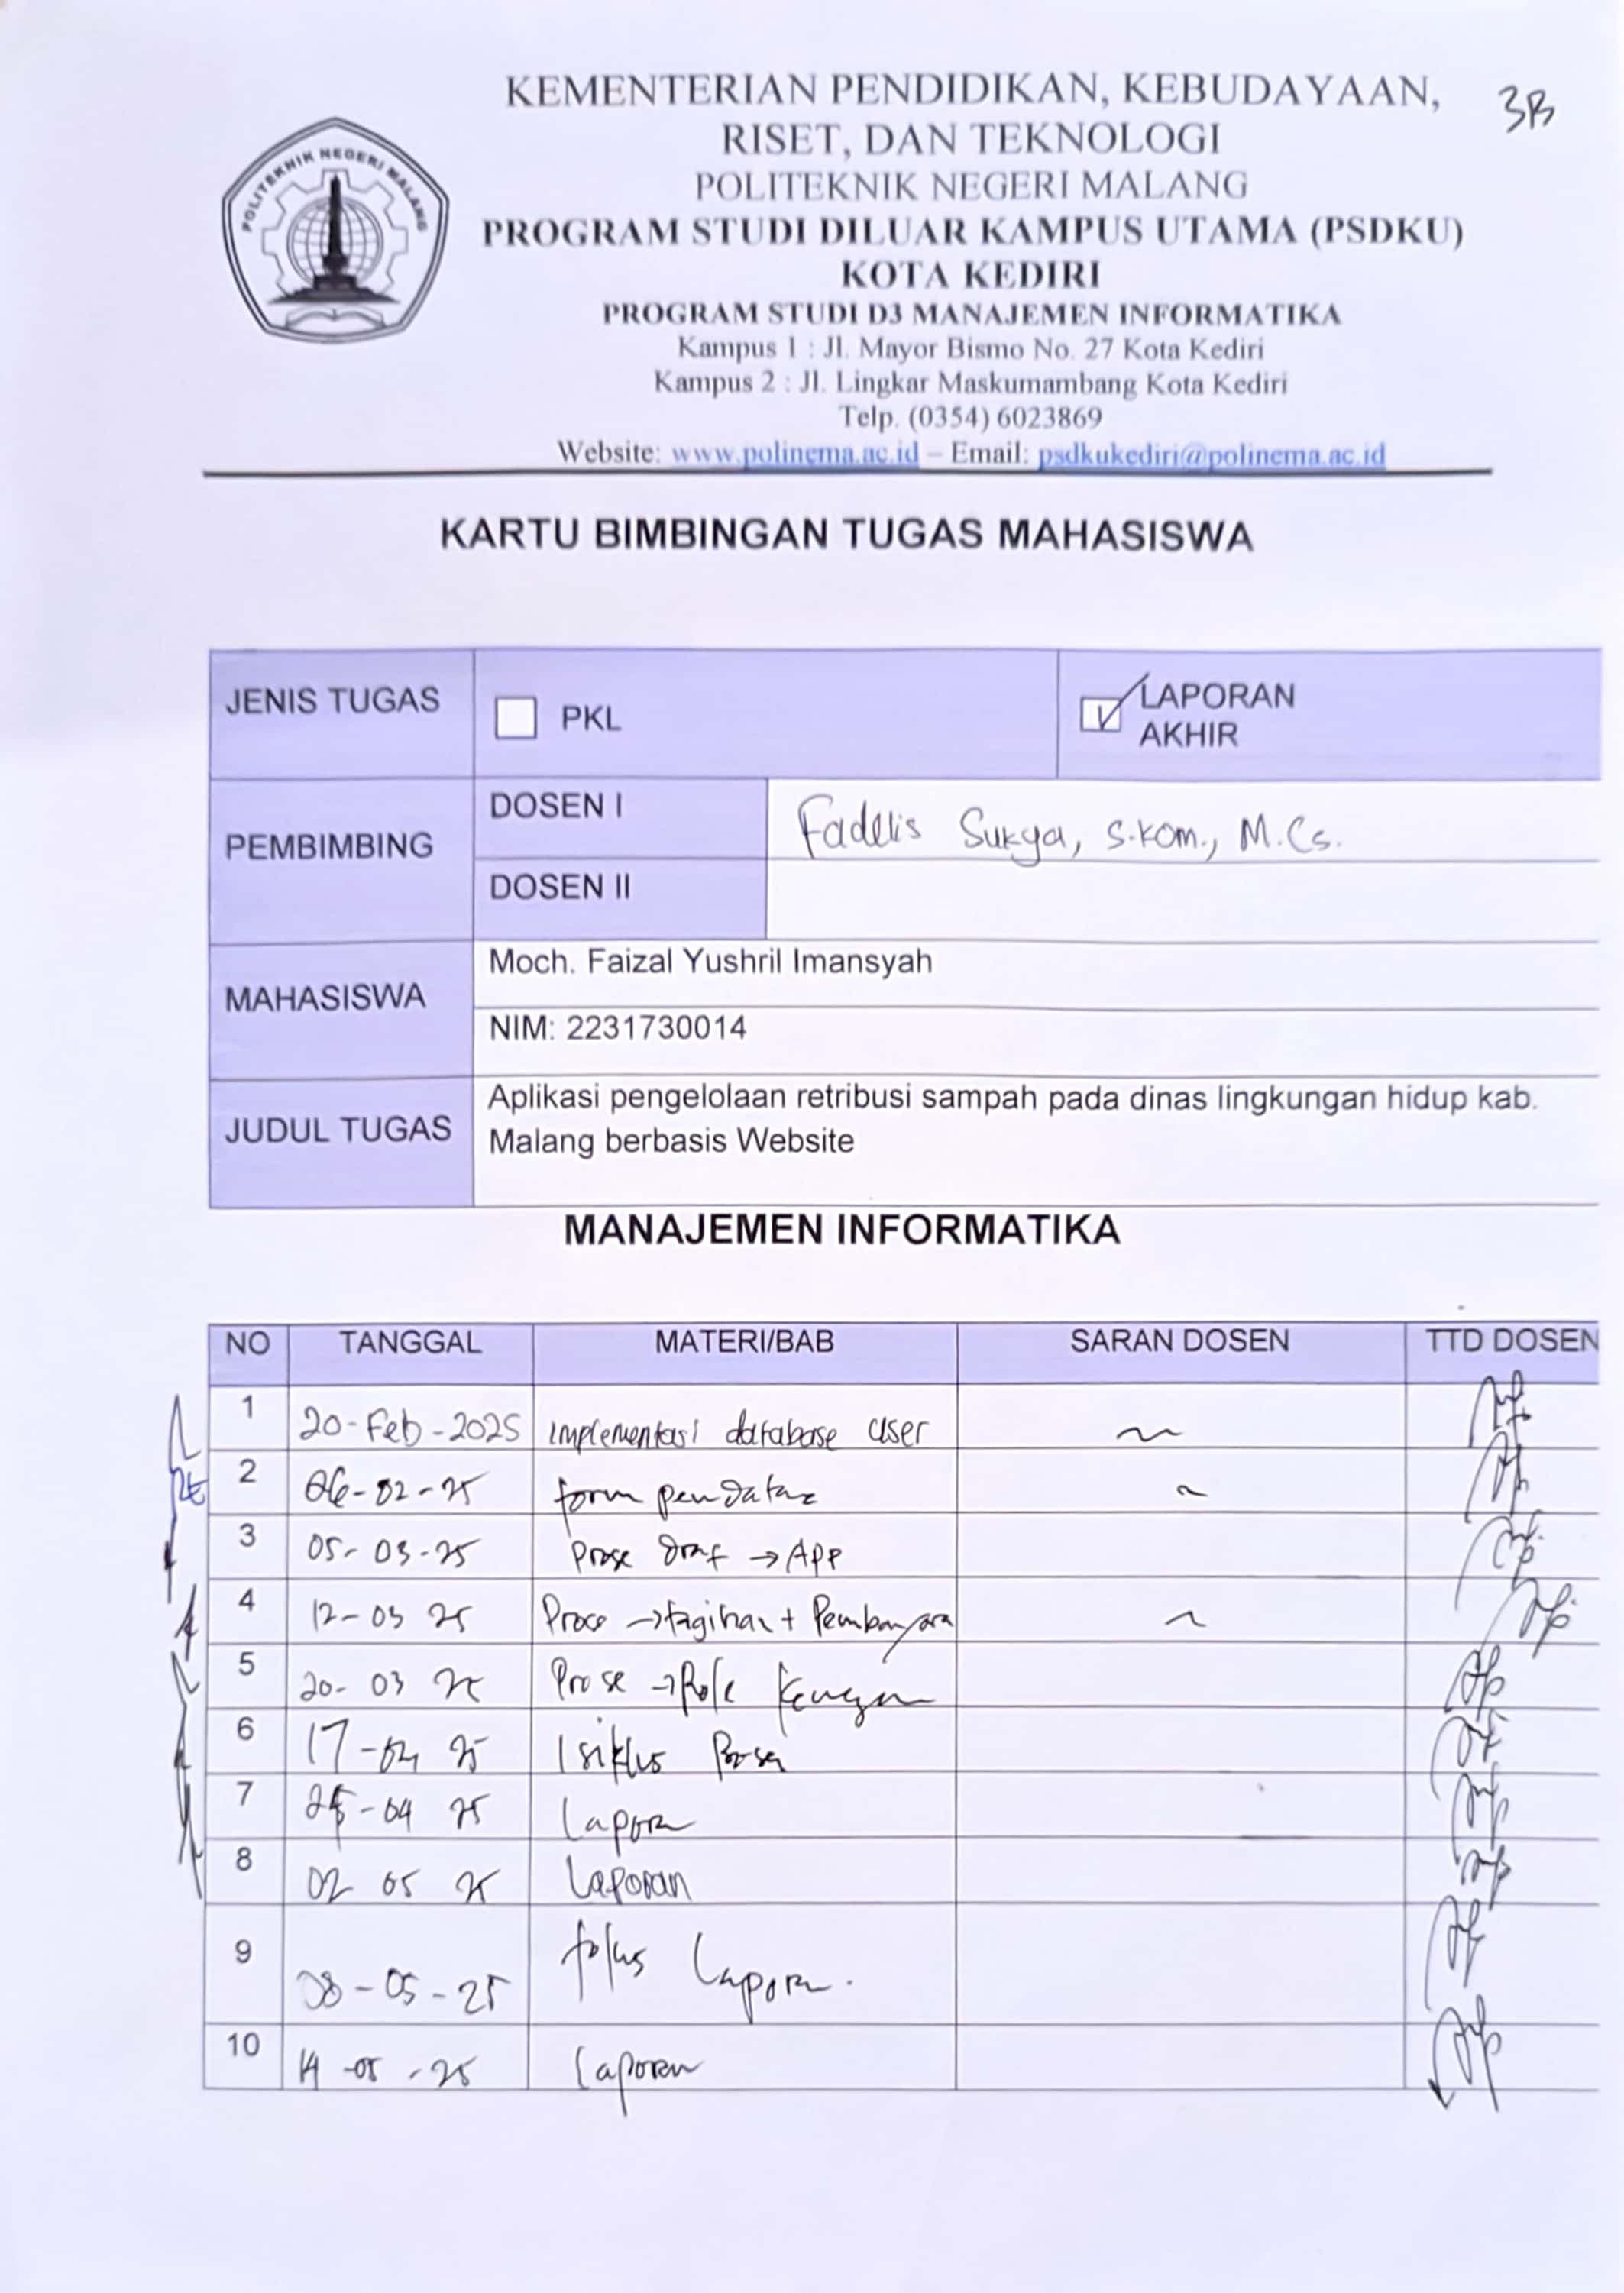 KEMENTERIAN PENDIDIKAN, KEBUDAYAAN,
3B
RISET, DAN TEKNOLOGI
POLITEKNIK NEGERI MALANG
POLITEKNIK NEGERI MALANG
PROGRAM STUDI DILUAR KAMPUS UTAMA (PSDKU)
KOTA KEDIRI
PROGRAM STUDI D3 MANAJEMEN INFORMATIKA
Kampus 1 : Jl. Mayor Bismo No. 27 Kota Kediri
Kampus 2 : Jl. Lingkar Maskumambang Kota Kediri
Telp. (0354) 6023869
Website: www.polinema.ac.id – Email: psdkukediri@polinema.ac.id
KARTU BIMBINGAN TUGAS MAHASISWA
JENIS TUGAS PKL LAPORAN
AKHIR
PEMBIMBING
DOSEN I Fadelis Sukya, S.Kom., M.Cs.
DOSEN II
MAHASISWA
Moch. Faizal Yushril Imansyah
NIM: 2231730014
JUDUL TUGAS
Aplikasi pengelolaan retribusi sampah pada dinas lingkungan hidup kab.
Malang berbasis Website
MANAJEMEN INFORMATIKA
NO TANGGAL MATERI/BAB SARAN DOSEN TTD DOSEN
1 20-Feb-2025 Implementasi database user
2 form
3 05-03-25 → APP
4 12-03 25 → tagihan +
5 20-03 25 → Role
6 17-04 25
7 04 25
8 02 05 25 Laporan
9 08-05-25 fokus
10 14-05-25 Laporan